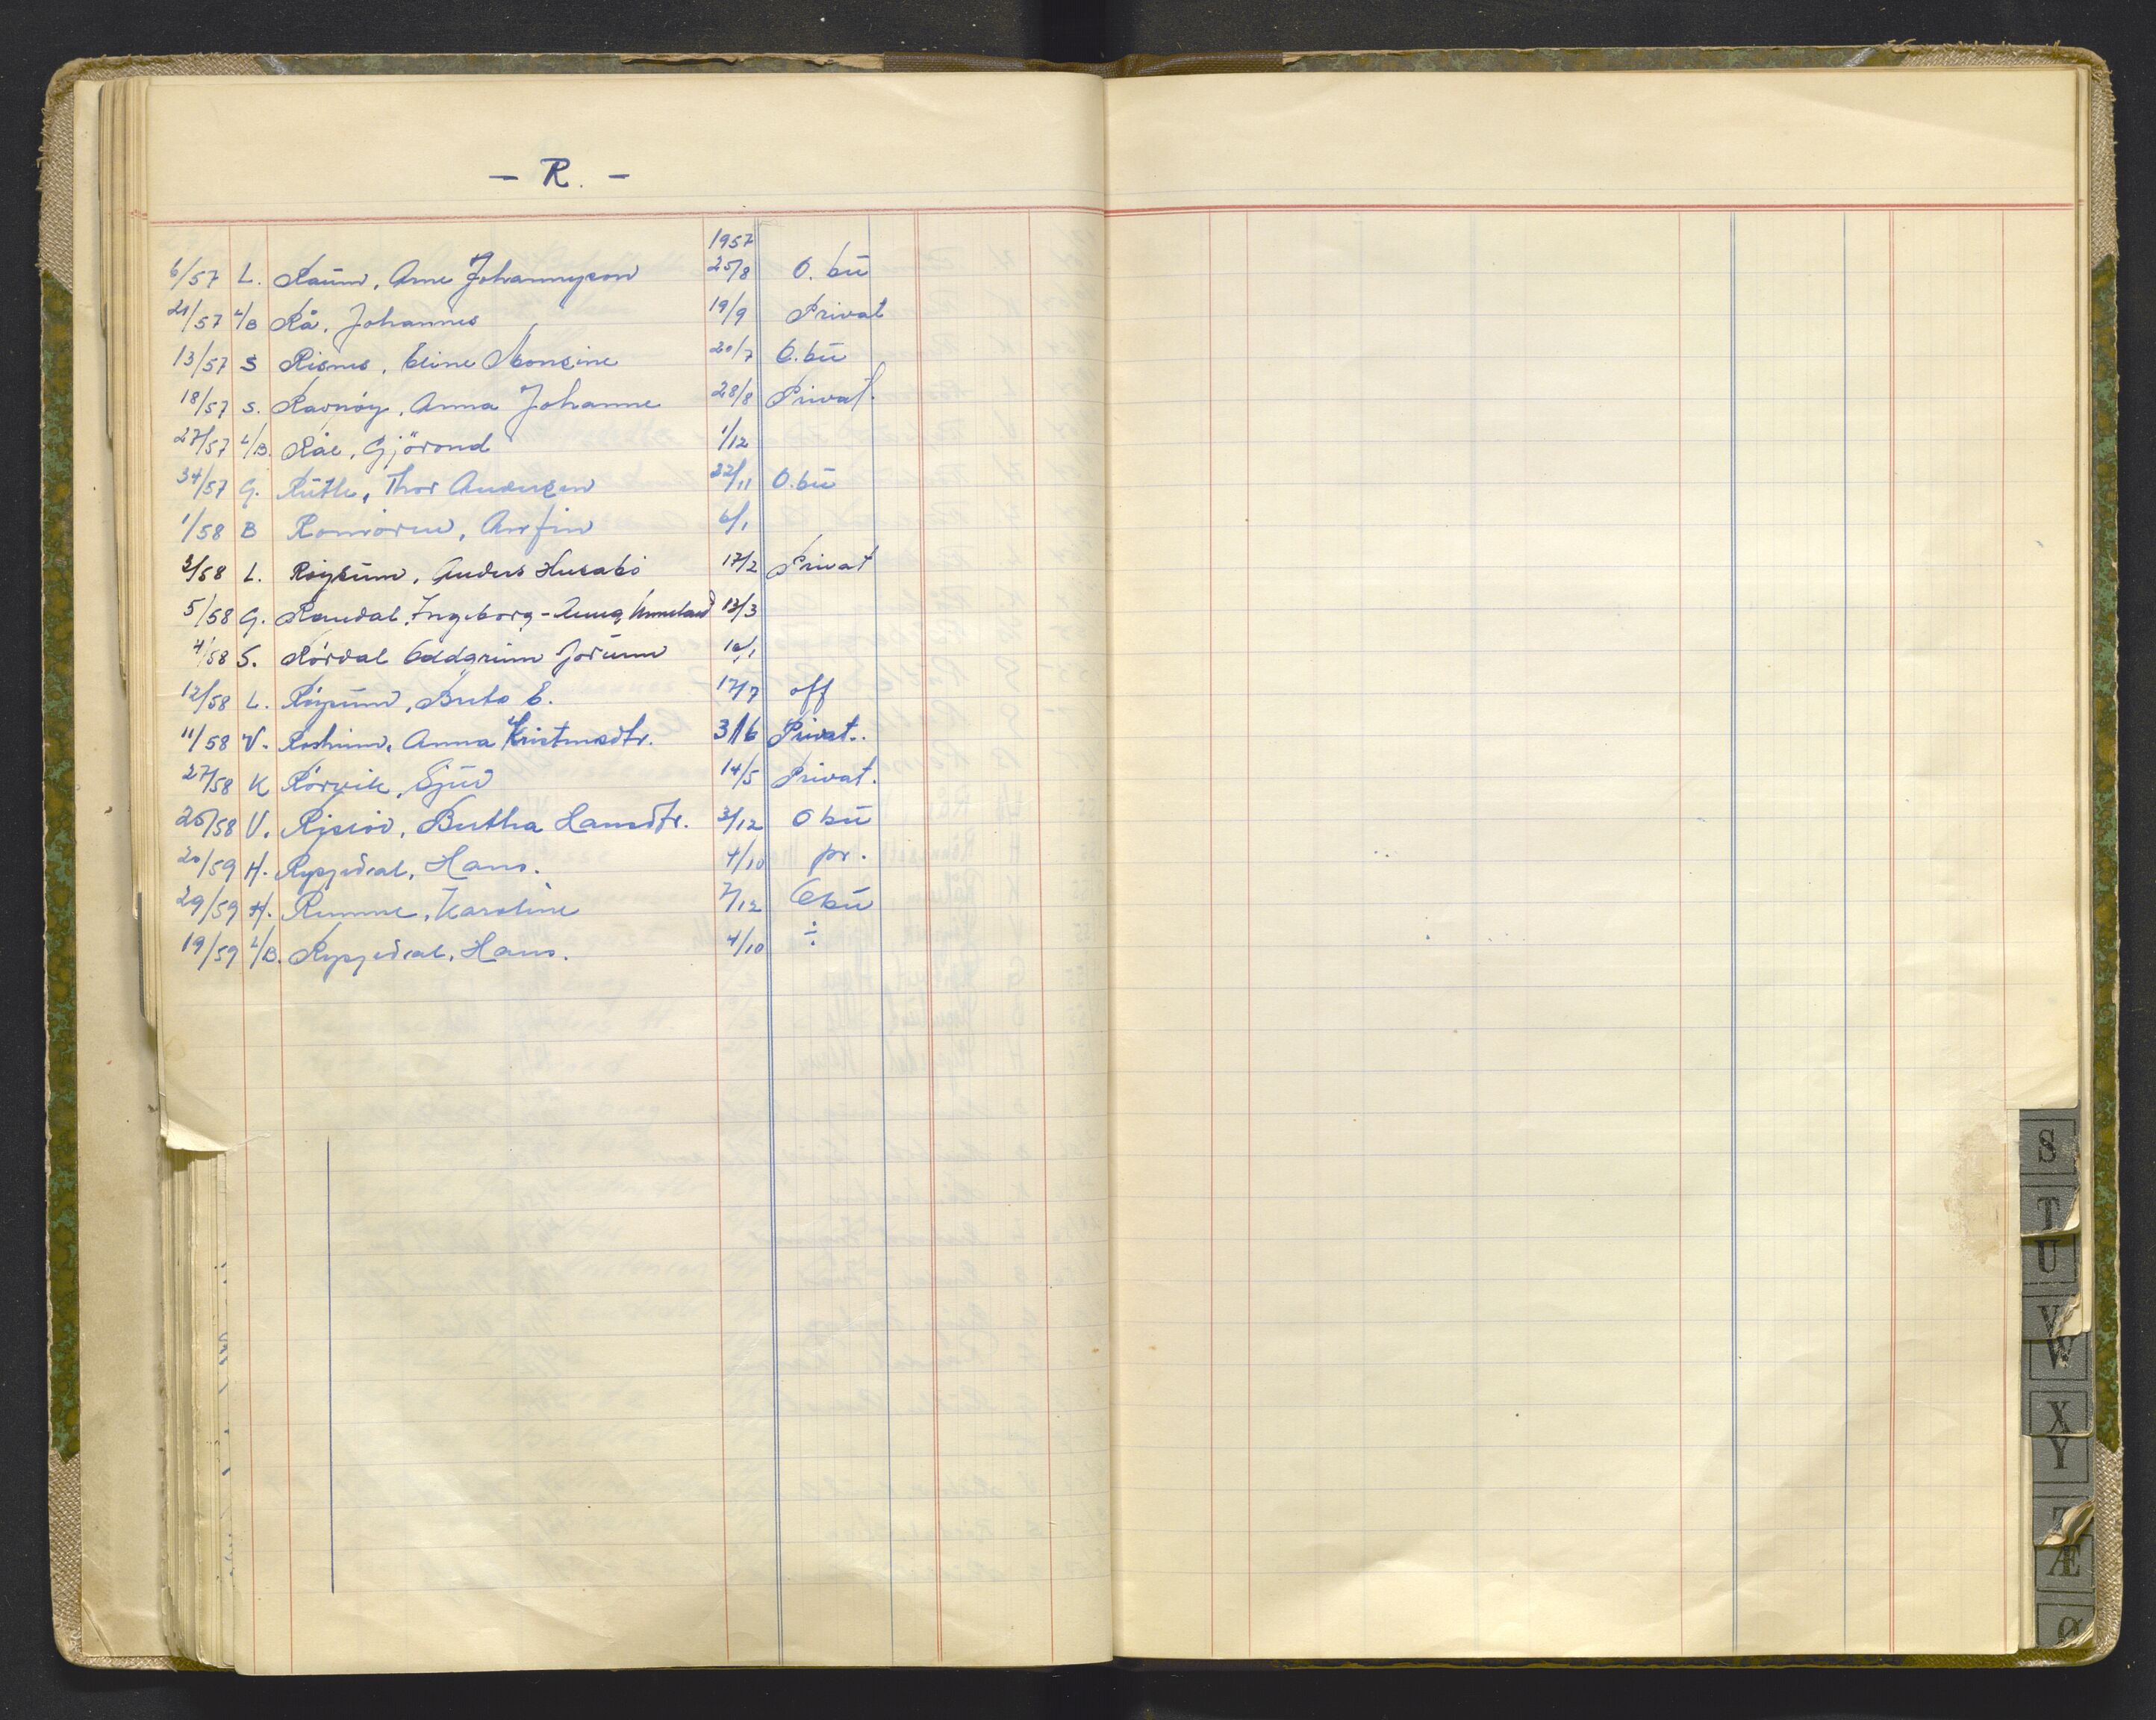 - R. -
1957
6/57 L. Raum, Arne Johannesson 25/8 O. bū
21/57 L/B Rå, Johannes 19/9 Privat
13/57 S Risnes, Eline Monsine 20/7 O. bū
18/57 S. Ravnöy, Anna Johanne 28/8 Privat.
27/57 L/B. Råe, Gjörond 1/12
34/57 G. Rūtle, Thor Andersen 22/11 O. bū
1/58 B Romören, Arnfin 6/1
3/58 L. Röysūm, Anders Husabö 17/2 Privat
5/58 G. Raudal, Ingeborg - Anna 13/3
4/58 S. Rördal Oddgrim Jorūnn 10/1
12/58 L. Röysūm, Brita E. 17/7 off
11/58 V. Anna Kristensdtr. 3/6 Privat.
27/58 K Rörvik, Sjūr 14/5 Privat.
25/58 V. Bertha Hansdtr. 3/12 O bū
20/59 H. Rypjedal, Hans. 4/10 pr.
29/59 H. Rumme, Karoline 7/12 O bū
19/59 L/B. Rypjedal, Hans. 4/10 ÷
S
T
U
V
W
X
Y
Z
Æ
Ø